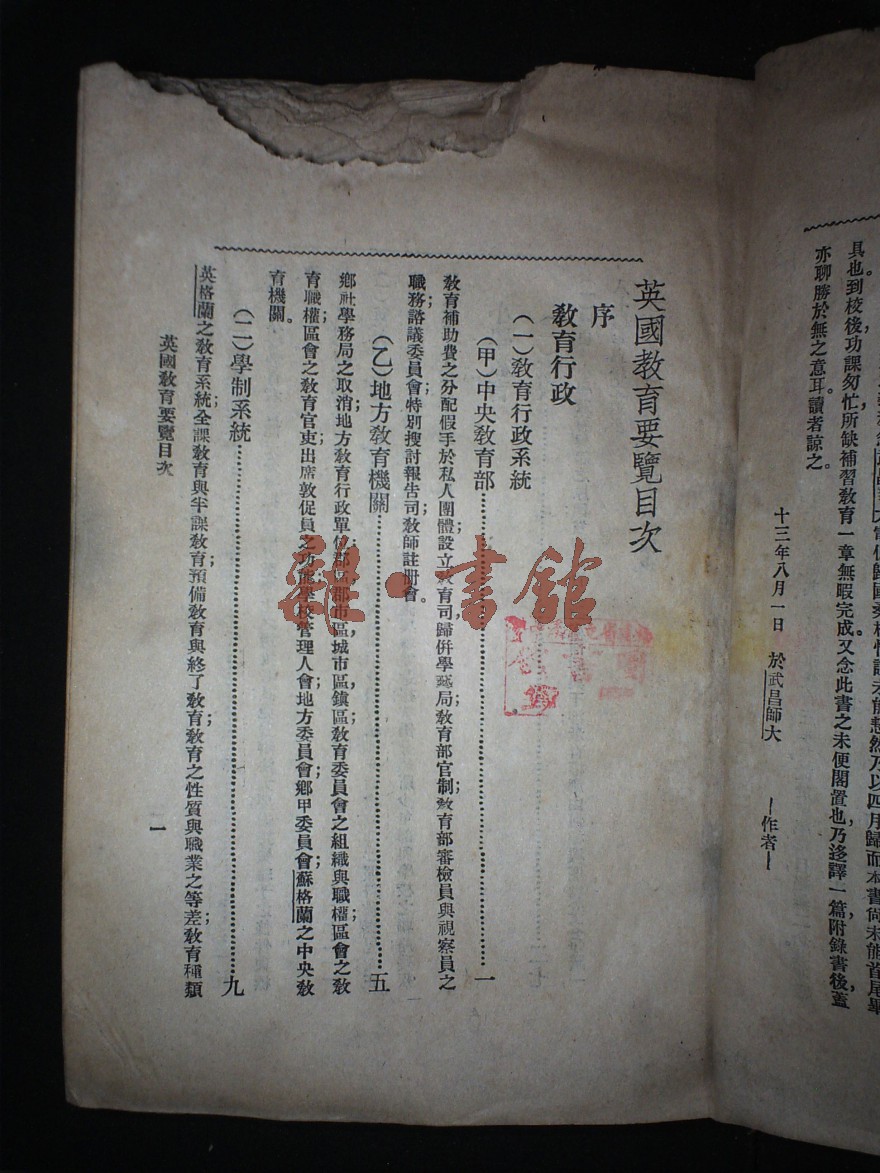 具也到校後功課匆忙所缺補習教育一章無暇完成又念此書之未便閣置也乃迻譯一篇附錄書後蓋
亦聊勝於無之意耳讀者諒之。
十三年八月一日　於武昌師大　—作者—
英國教育要覽目次
序
教育行政
（一）教育行政系統
（甲）中央教育部…………一
教育補助費之分配假手於私人團體；設立教育司歸併學藝局；教育部官制；教育部審檢員與視察員之
職務；諮議委員會；特別搜討報告司；教師註冊會。
（乙）地方教育機關…………五
鄉社學務局之取消；地方教育行政單位，郡區，郡市區，城市區，鎮區；教育委員會之組織與職權；區會之教
育職權；區會之教育官吏；出席敦促員之功能；學校管理人會；地方委員會；鄉甲委員會；蘇格蘭之中央教
育機關。
（二）學制系統…………九
英格蘭之教育系統；全課教育與半課教育；預備教育與終了教育；教育之性質與職業之等差；教育種類
英國教育要覽目次
一
雜·書館